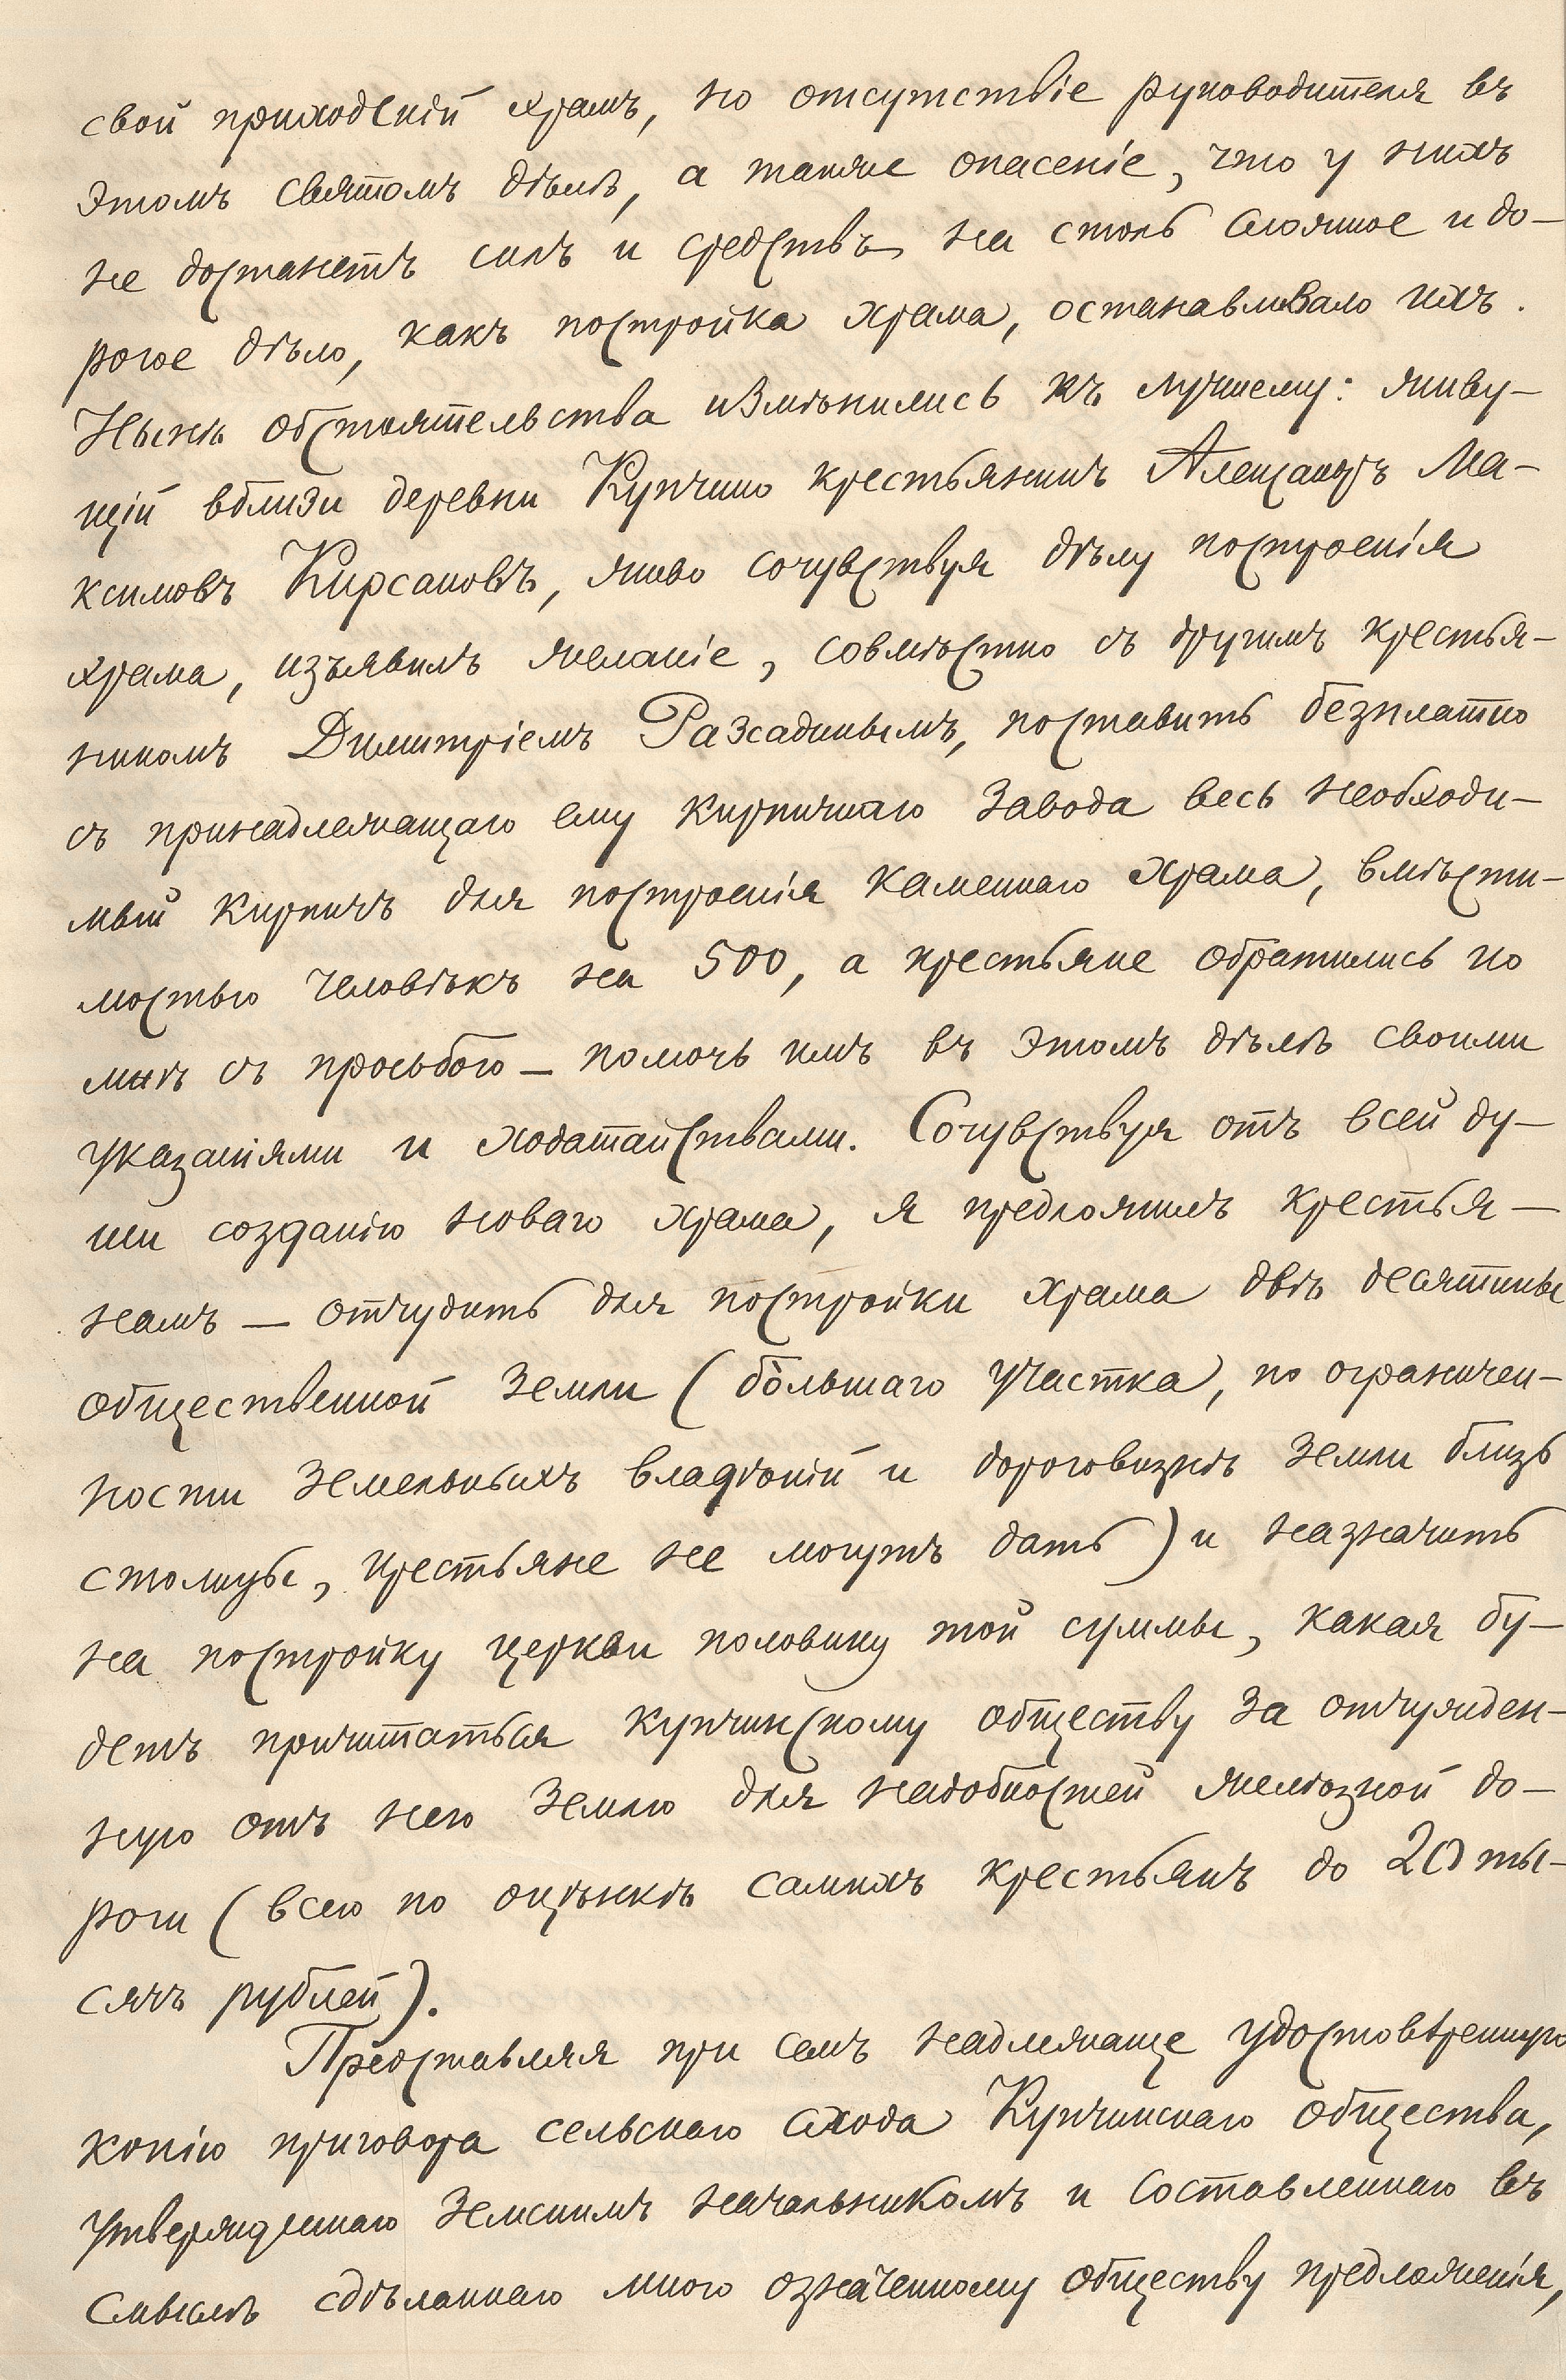 свой приходскій храмъ, но отсутствіе руководителя въ
этомъ святомъ дѣлѣ, а также опасеніе, что у нихъ
не достанетъ силъ и средствъ на столь сложное и до-
рогое дѣло, какъ постройка храма, останавливало ихъ.
Нынѣ обстоятельства измѣнились къ лучшему: живу-
щій вблизи деревни Купчино крестьянинъ Александръ Ма-
ксимовъ Кирсановъ, живо сочувствуя дѣлу построенія
храма, изъявилъ желаніе, совмѣстно съ другимъ крестья-
ниномъ Димитріемъ Разсадинымъ, поставить безплатно
съ принадлежащаго ему кирпичнаго завода весь необходи-
мый кирпичъ для построенія каменнаго храма, вмѣсти-
мостью человѣкъ на 500, а крестьяне обратились ко
мнѣ съ просьбою — помочь имъ въ этомъ дѣлѣ своими
указаніями и ходатайствами. Сочувствуя отъ всей ду-
ши созданію новаго храма, я предложилъ крестья-
намъ — отчудить для постройки храма двѣ десятины
общественной земли (бо́льшаго участка, по ограничен-
ности земельныхъ владѣній и дороговизнѣ земли близъ
столицы, крестьяне не могутъ дать) и назначить
на постройку церкви половину той суммы, какая бу-
детъ причитаться купчинскому обществу за отчужден-
ную отъ него землю для надобностей желѣзной до-
роги (всего по оцѣнкѣ самихъ крестьянъ до 20 ты-
сячъ рублей).
Представляя при семъ надлежаще удостовѣренную
копію приговора сельскаго схода Купчинскаго общества,
утвержденнаго Земскимъ начальникомъ и составленнаго въ
смыслѣ сдѣланнаго мною означенному обществу предложенія,